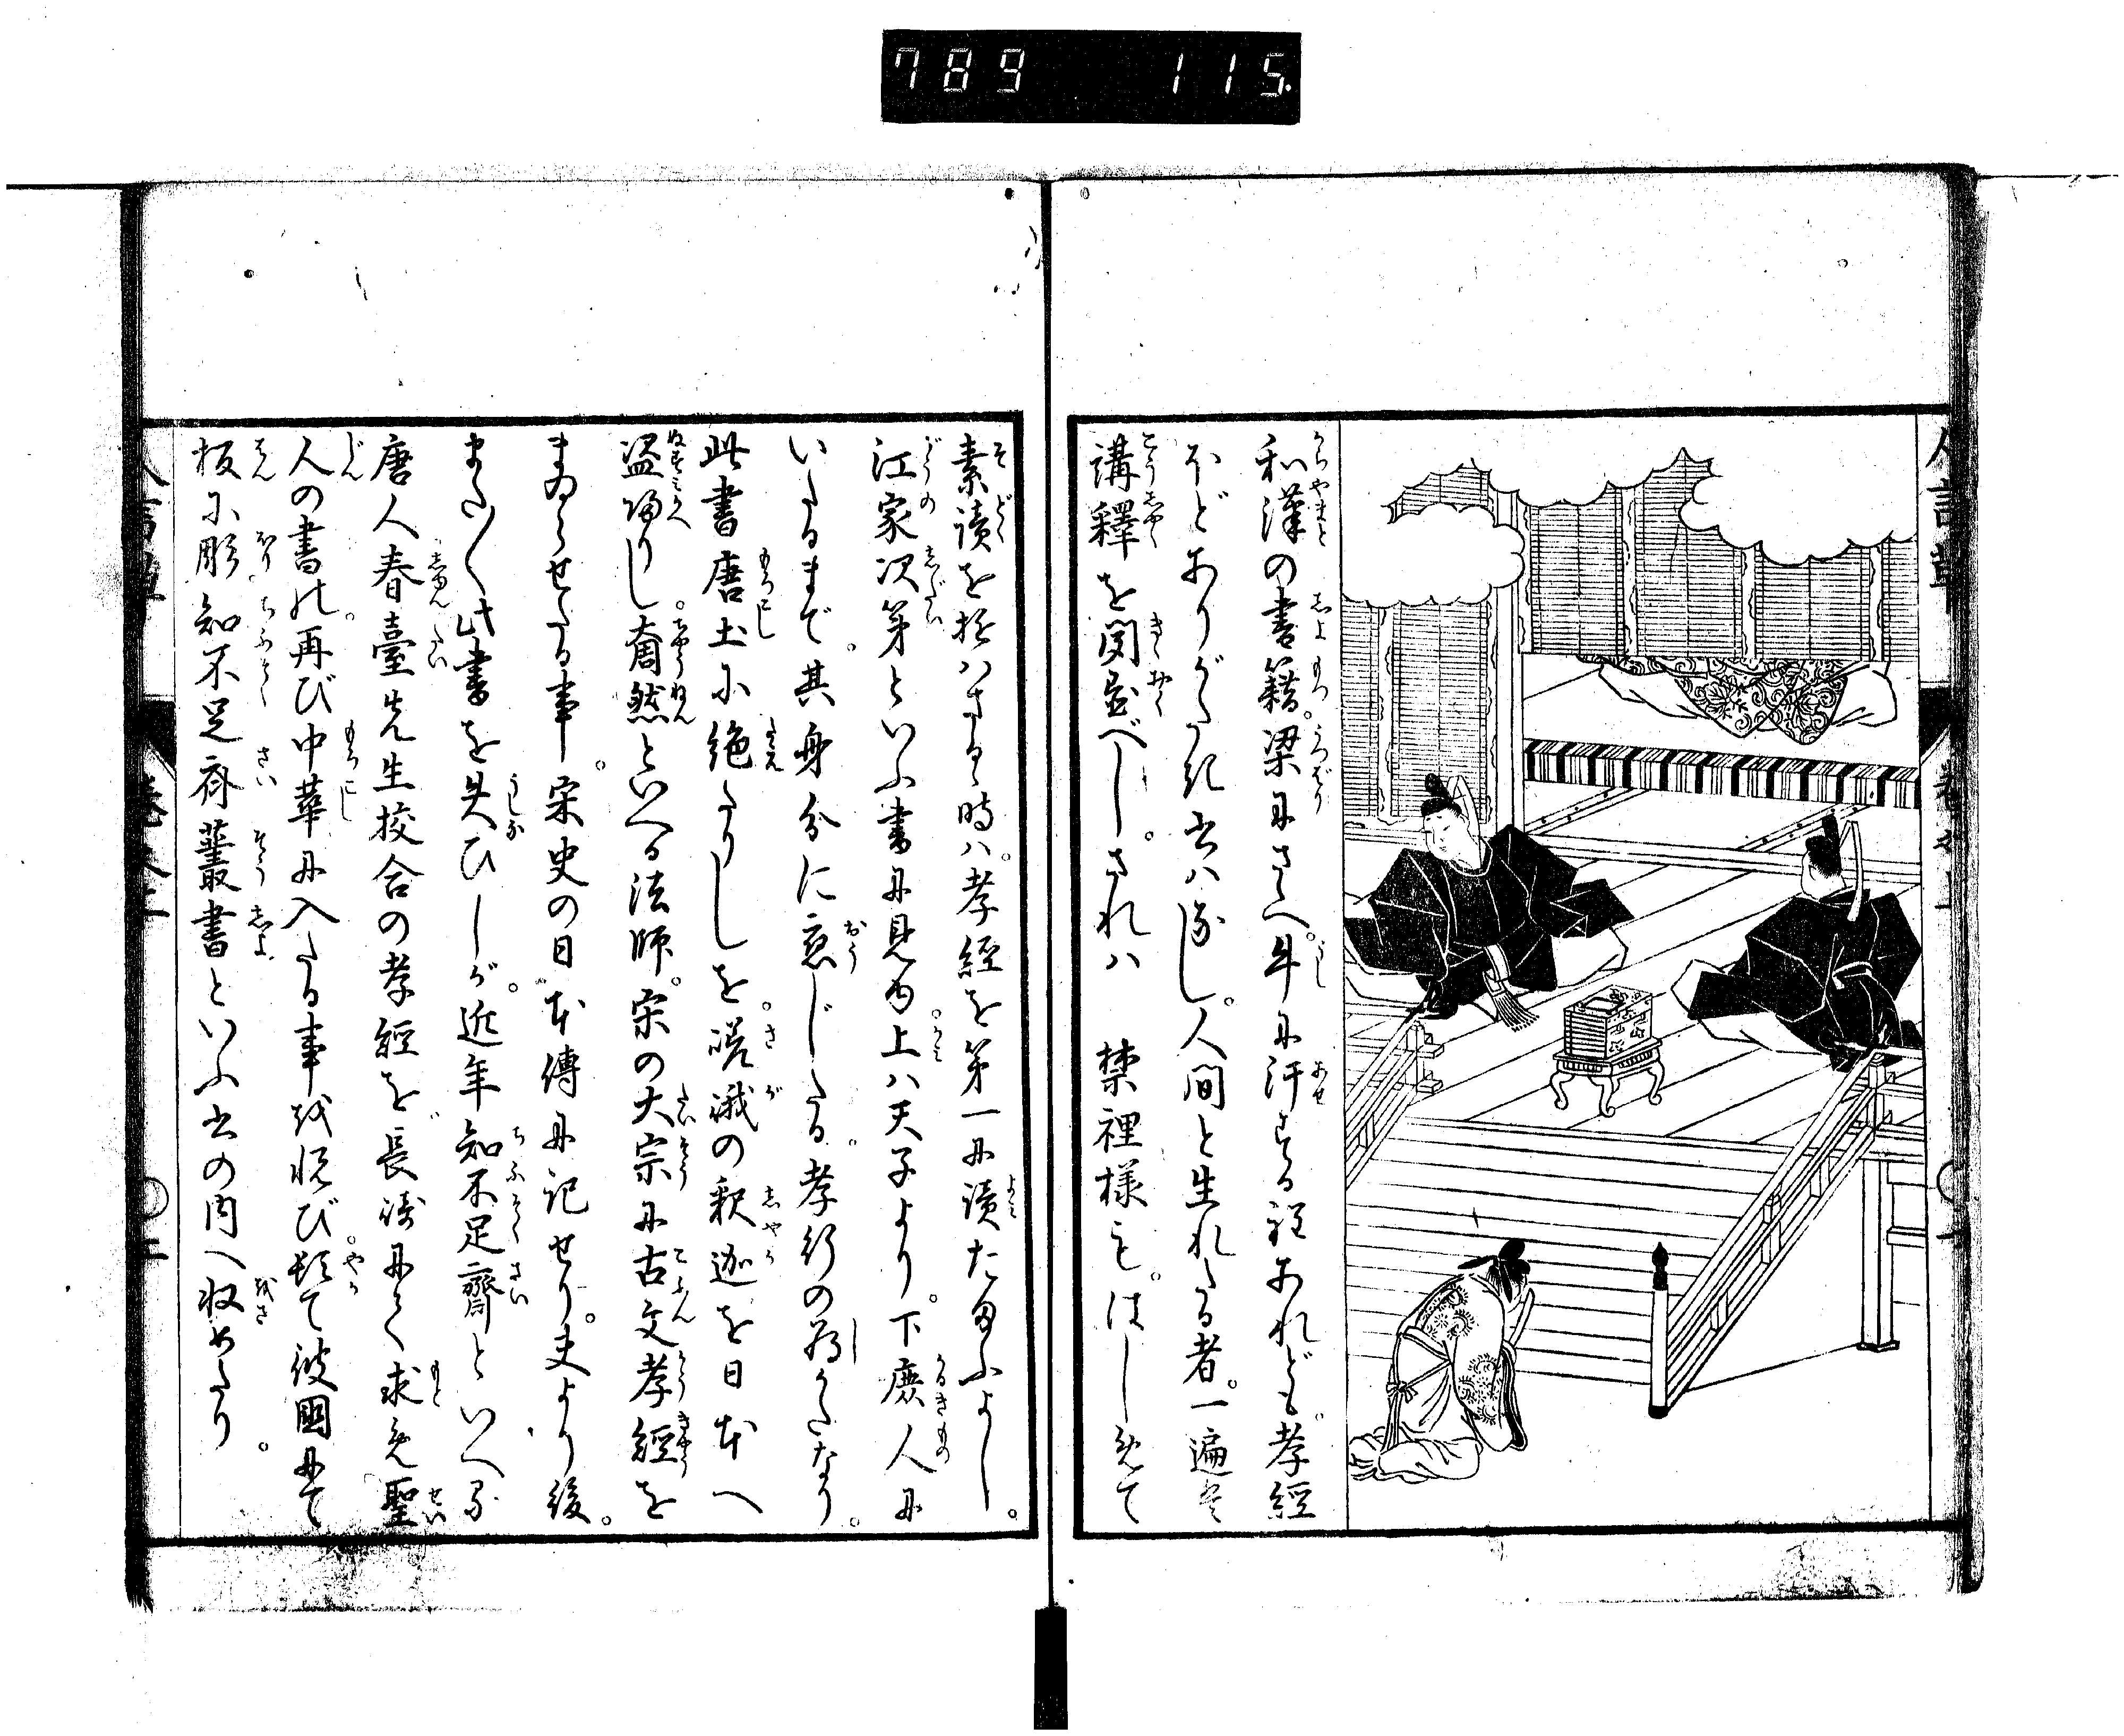 789 115.
和漢の書籍。梁にさへ。牛に汗する程あれども。孝經
ほどありがたき書はなし。人間と生れたる者。一遍は
講釋を聞置べし。されハ 禁裡様も。はじめて
素讀を遊ハさるゝ時ハ。孝經を第一に讀たまふよし。
江家次第といふ書に見ゆ。上ハ天子より。下庶人に
いたるまで。其身分に應じたる。孝行の為かたなり。
此書唐土に絶たりしを。嵯峨の釈迦を日本へ
盗帰りし。奝然といへる法師。宋の大宗に古文孝經を
まゐらせたる事。宋史の日本傳に記せり。夫より後。
また〳〵此書を失ひしが。近年知不足齋といへる
唐人春臺先生挍合の孝經を。長崎にて求え聖
人の書の。再び中華に入たる事を悦び。頓て彼國にて
板に彫知不足斎叢書といふ書の内へ収めたり。